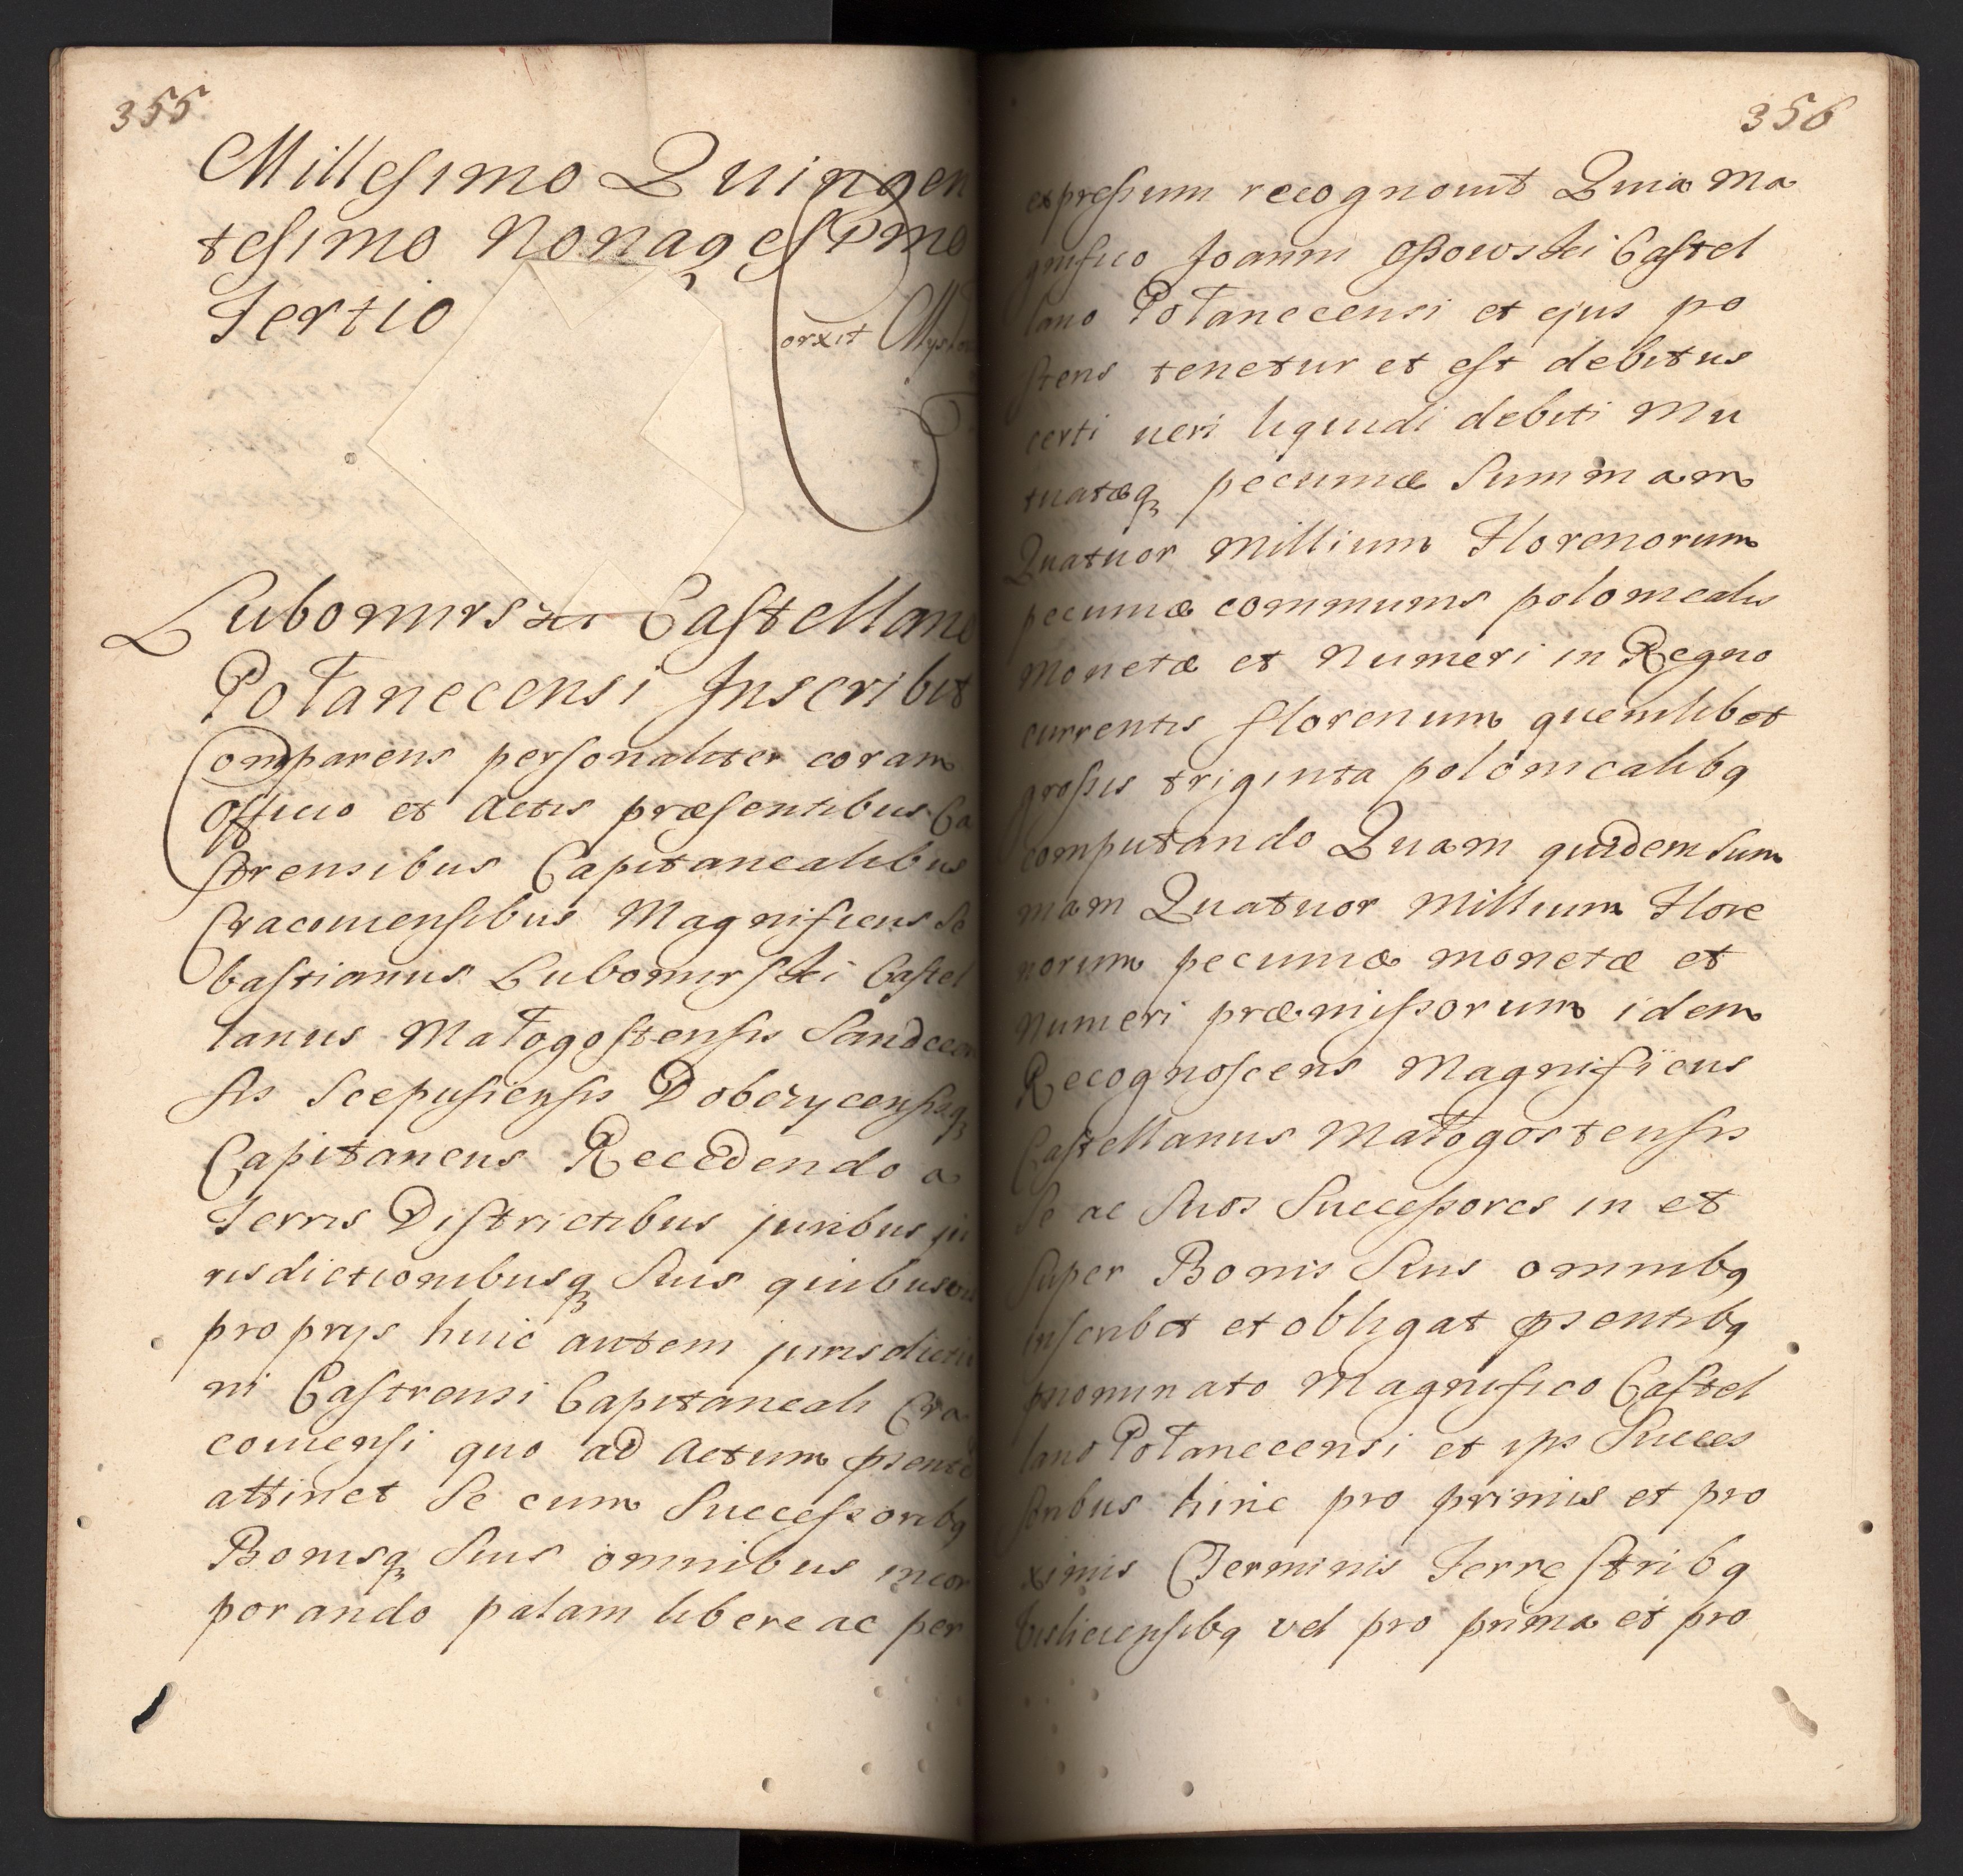 355
Millesimo Quingen
tesimo Nonagesimo
Tertio
orxit
Lubomirski Castellano
Połanecensi Inscribit
Comparens personaliter coram
Officio et Actis præsentibus Ca
strensibus Capitanealibus
Cracoviensibus Magnificus Se
bastianus Lubomirski Castel
lanus Małogostensis Sandecen
sis Scepusiensis Dobczycensisq
Capitaneus Recedendo a
Terris Districtibus juribus ju
risdictionibusq Suis quibusvis
proprys huic autem jurisdictio
ni Castrensi Capitaneali Cra
coviensi quo ad Actum psente
attinet Se cum Successoribq
Bonisq Suis omnibus incor
porando palam libere ac per
356
expressum recognovit Quia Ma
gnifico Joanni Ossowski Castel
lano Połanecensi et ejus po
steris tenetur et est debitus
certi veri liquidi debiti Mu
tuatæq pecuniæ Summam
Quatuor Millium Florenorum
pecuniæ communis polonicalis
Monetæ et Numeri in Regno
currentis florenum quemlibet
grossis triginta polonicalibq
computando Quam quidem Sum
mam Quatuor Millium Flore
norum pecuniæ monetæ et
Numeri præmissorum idem
Recognoscens Magnificus
Castellanus Małogostensis
Se ac Suos Successores in et
Super Bonis Suis omnibq
inscribet et obligat psentibq
pnominato Magnifico Castel
lano Połanecensi et ips Succes
soribus hinc pro primis et pro
ximis Terminis Terrestribq
Visliciensibq vel pro prima et pro